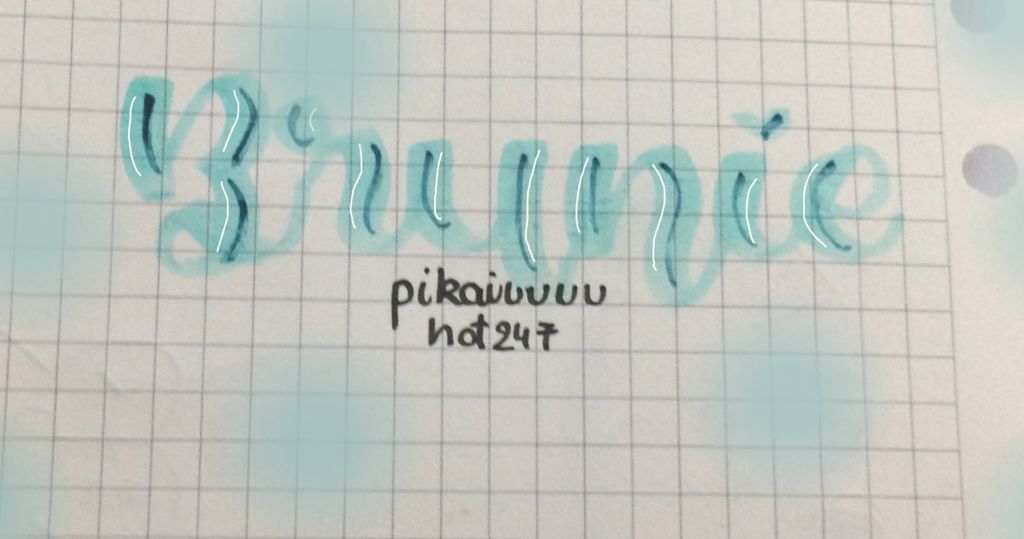 Brunie
pikaiuuuu
hot247